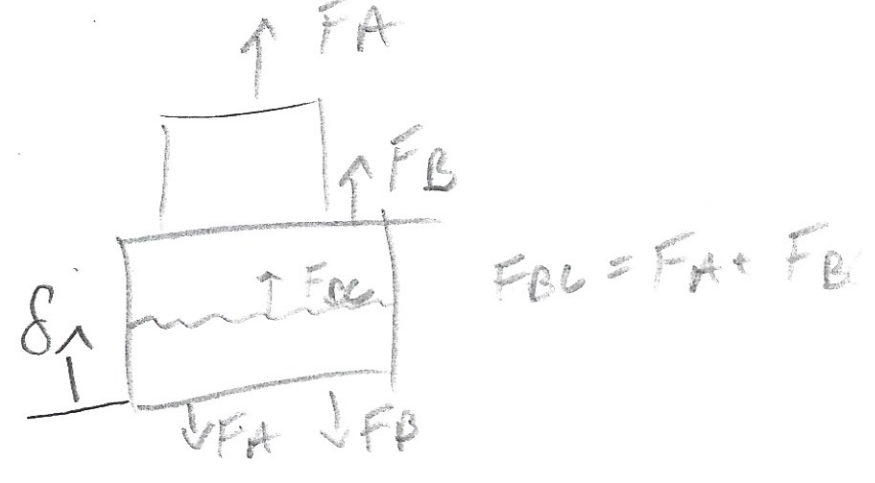 FA
FB
FBC
FBC = FA + FB
δ
FA FB